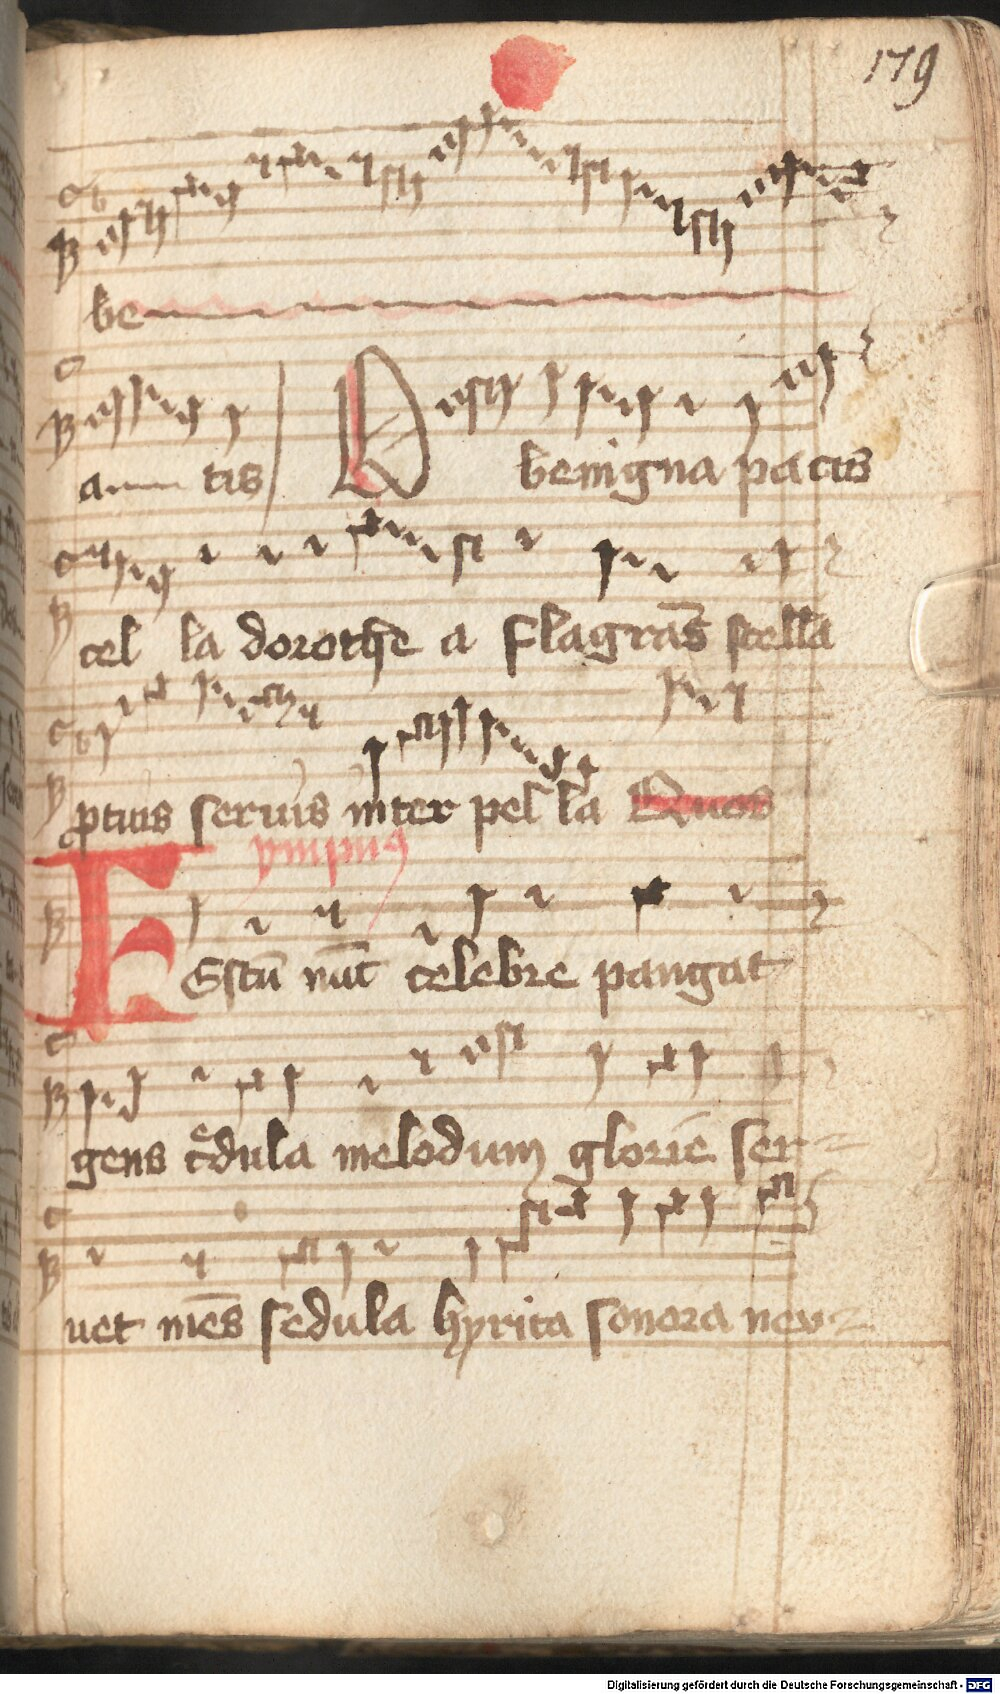 179
be
a tis O benigna pacis
cel la dorothe a flagrās stella
ptuis seruis inter pel la Quos
ympus
Estū nūc celebre pangat
gens cedula melodum glorie ser
uet mēs sedula hyrita sonora neu
Digitalisierung gefördert durch die Deutsche Forschungsgemeinschaft - DFG